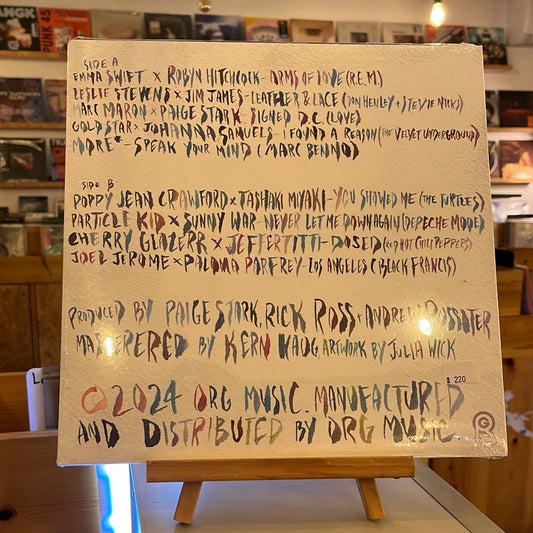 SIDE A
EMMA SWIFT x ROBYN HITCHCOCK - ARMS OF LOVE (R.E.M.)
LESLIE STEVENS x JIM JAMES - LEATHER & LACE (DON HENLEY + STEVIE NICKS)
MARC MARON x PAIGE STARK - SIGNED D.C. (LOVE)
GOLD STAR x JOHANNA SAMUELS - I FOUND A REASON (THE VELVET UNDERGROUND)
MORE* - SPEAK YOUR MIND (MARC BENNO)
SIDE B
POPPY JEAN CRAWFORD x TASHAKI MIYAKI - YOU SHOWED ME (THE TURTLES)
PARTICLE KID x SUNNY WAR - NEVER LET ME DOWN AGAIN (DEPECHE MODE)
CHERRY GLAZERR x JEFFERTITTI - DOSED (RED HOT CHILI PEPPERS)
JOEL JEROME x PALOMA PARFREY - LOS ANGELES (BLACK FRANCIS)
PRODUCED BY PAIGE STARK, RICK ROSS + ANDREW ROSSITER
MASTERED BY KERN HAUG ARTWORK BY JULIA WICK
220
© 2024 ORG MUSIC. MANUFACTURED
AND DISTRIBUTED BY ORG MUSIC.
PUNK 45